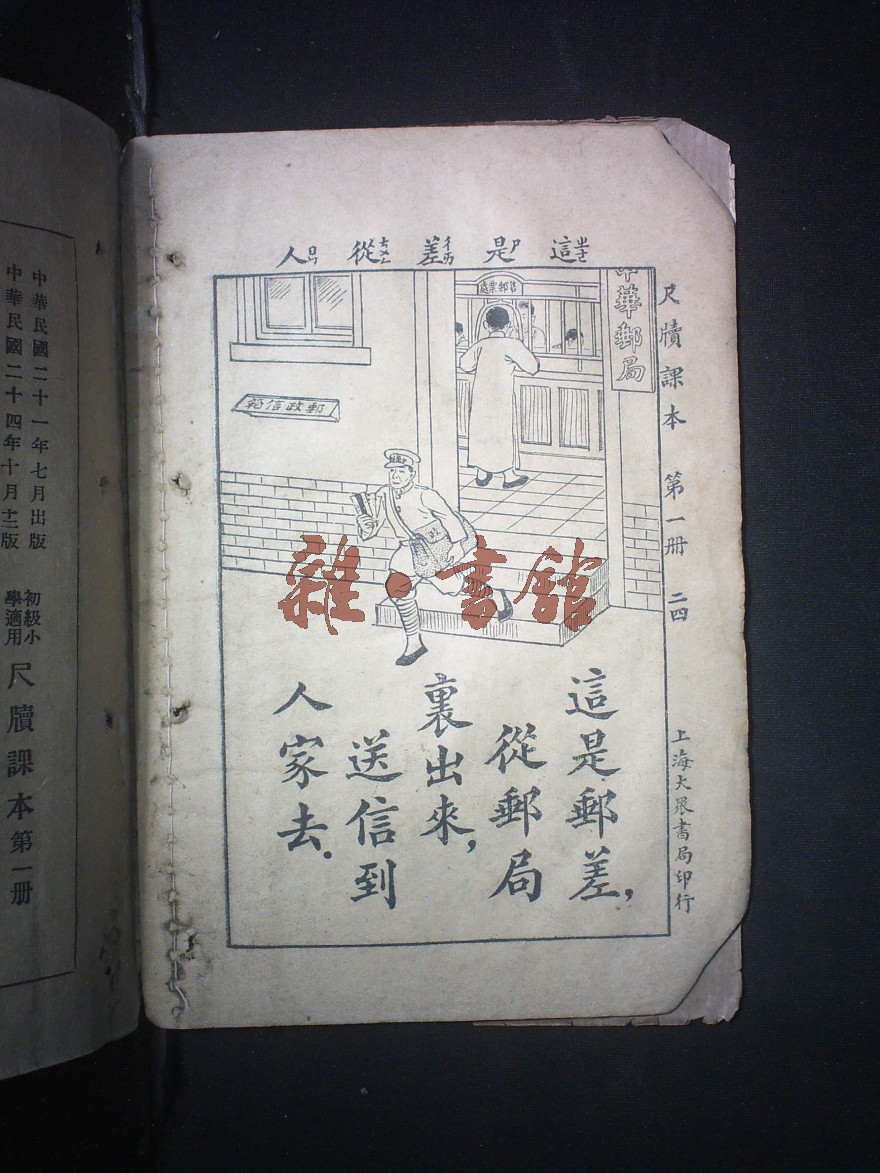 尺牘課本 第一册 二四
上海大眾書局印行
這ㄓㄜ 是ㄕ 差ㄔㄞ 從ㄘㄨㄥ 人ㄖㄣ
中華郵局
售郵票處
郵政信箱
這是郵差，
從郵局
裏出來，
送信到
人家去．
雜·書館
中華民國二十一年七月出版
中華民國二十四年十月十二版
初級小
學適用
尺牘課本第一册